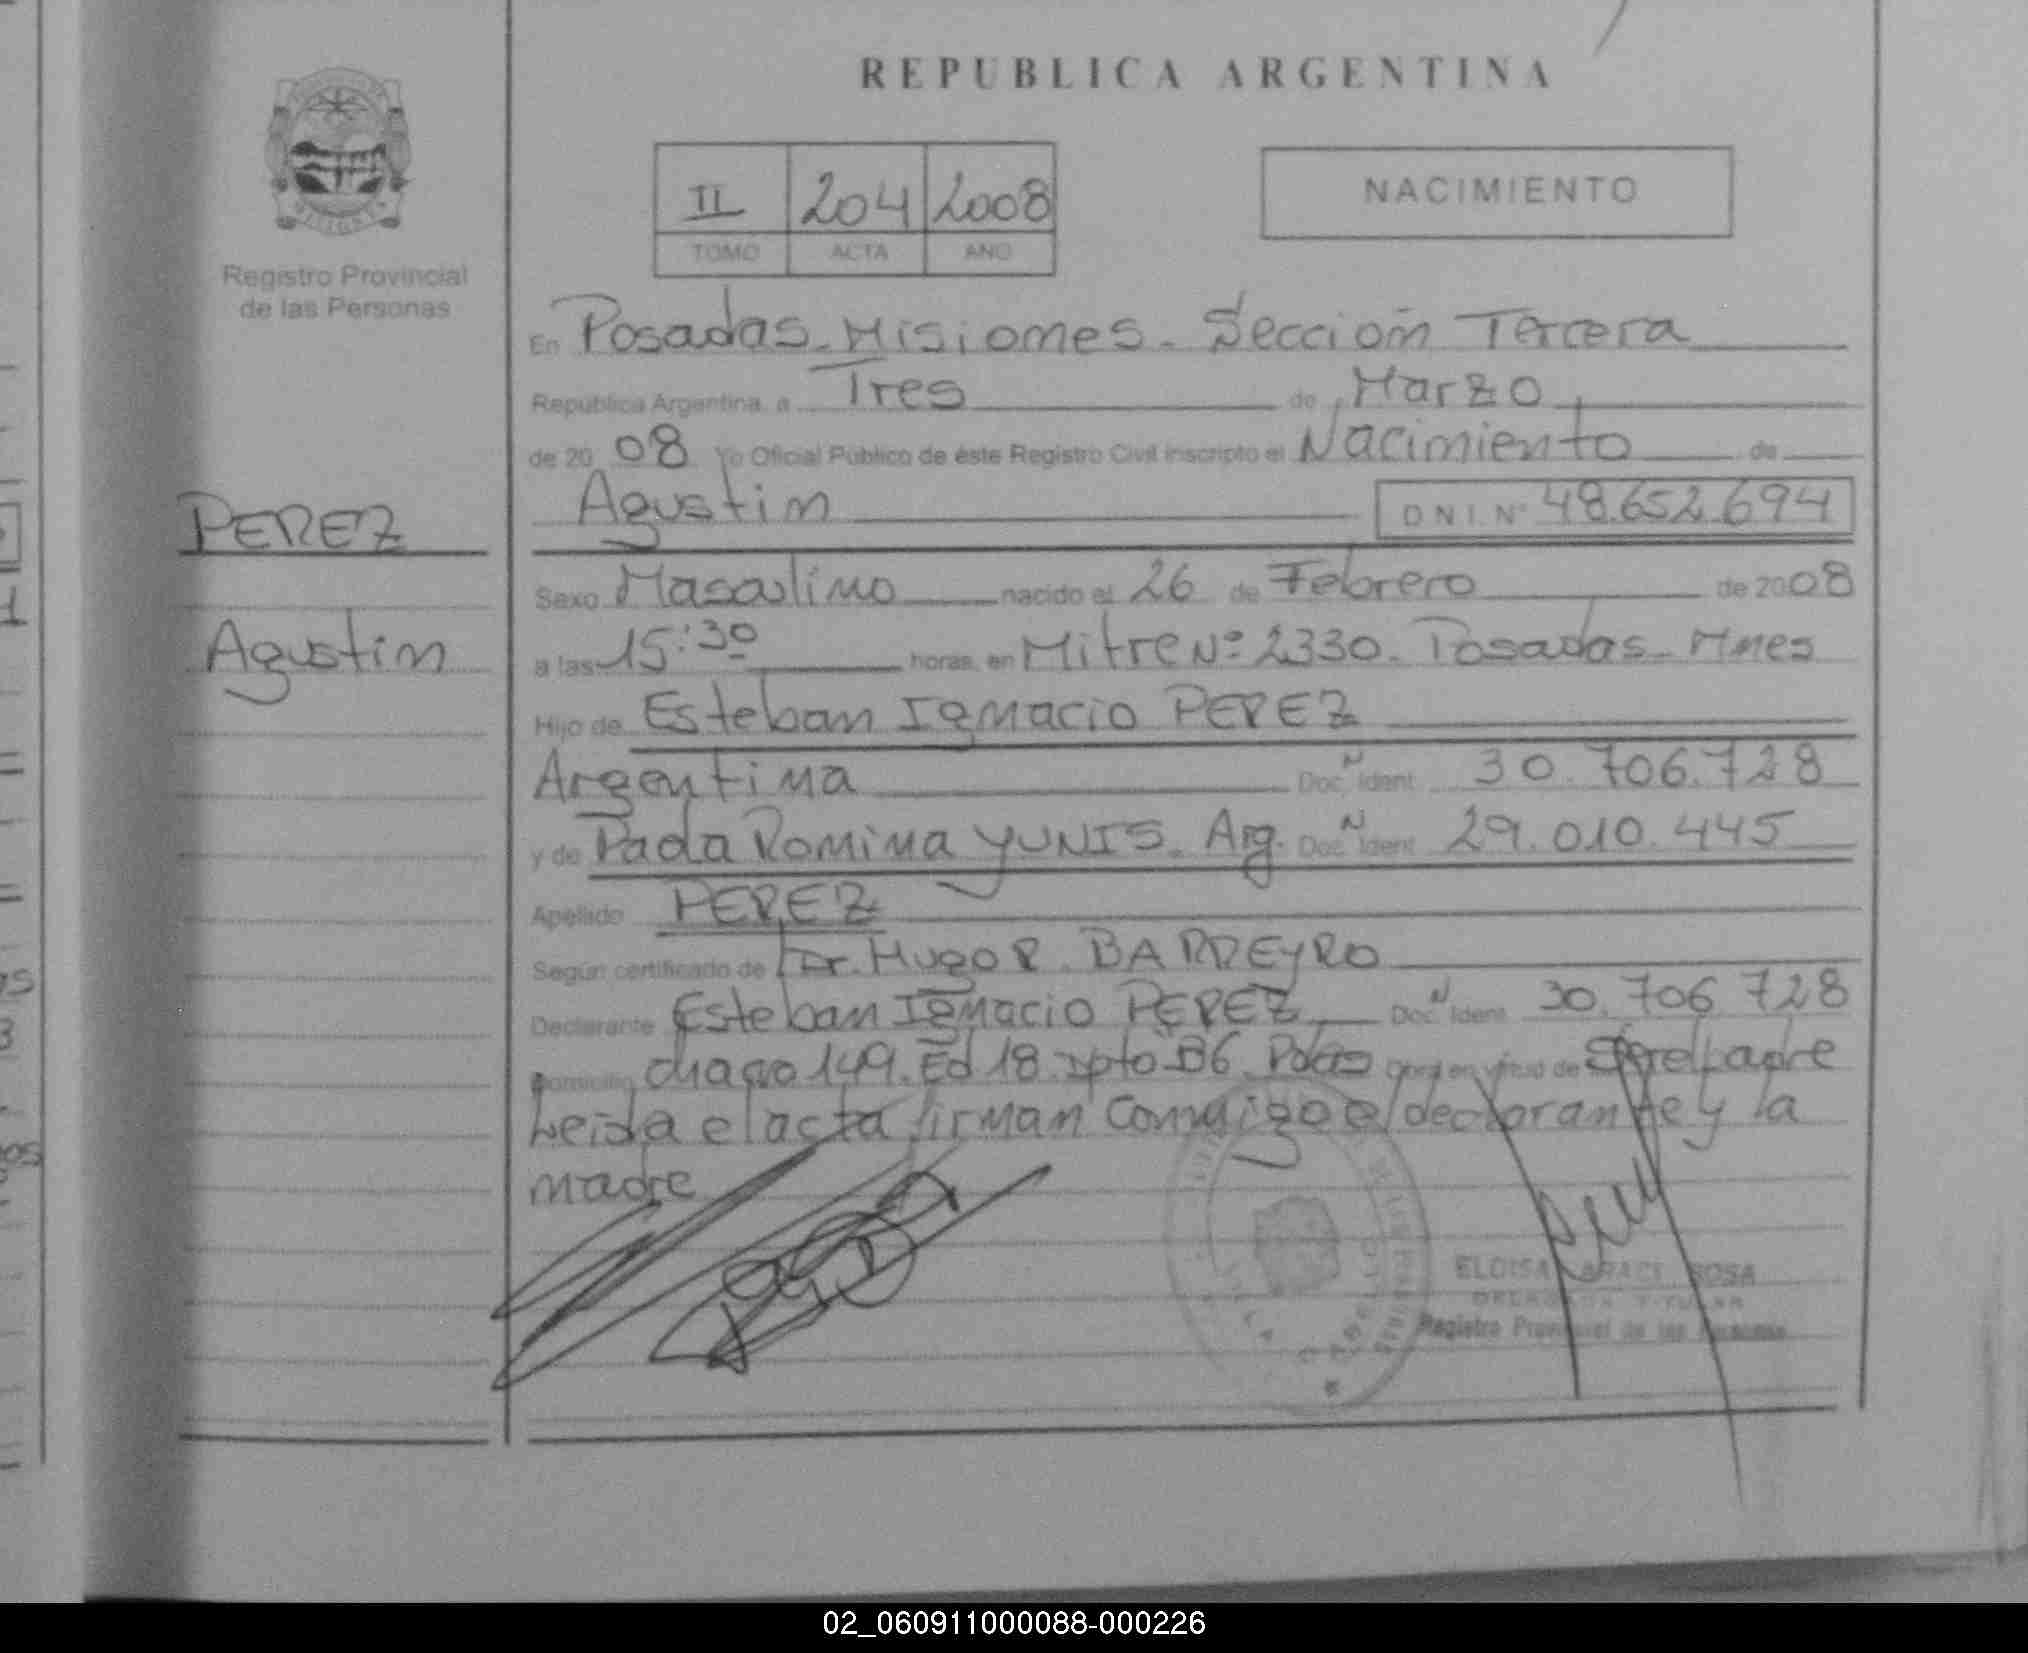 REPUBLICA ARGENTINA
II 204 2008
TOMO ACTA AÑO
NACIMIENTO
Registro Provincial
de las Personas
PEREZ
Agustin
En Posadas-Misiones-Sección Tercera
República Argentina, a Tres de Marzo
de 2008 Yo Oficial Público de éste Registro Civil inscripto el Nacimiento de
Agustin D N I. Nº 48.652.694
Sexo Masculino nacido el 26 de Febrero de 2008
a las 15:30 horas, en Mitre Nº 2330. Posadas-Mnes
Hijo de Esteban Ignacio PEREZ
Argentina Doc. Ident. 30.706.728
y de Romina YUNIS. Arg. Doc. Ident. 29.010.445
Apellido PEREZ
Según certificado de Dr. Hugo R. BARREYRO
Declarante Esteban Ignacio PEREZ Doc. Ident. 30.706.728
Domicilio 149. Ed 18. Dpto B6. Obra en virtud de Ser el padre
Leida el acta firman conmigo el declarante y la
madre
ELOISA ARACI SOSA
DELEGADA TITULAR
Registro Provincial de las Personas
02_060911000088-000226